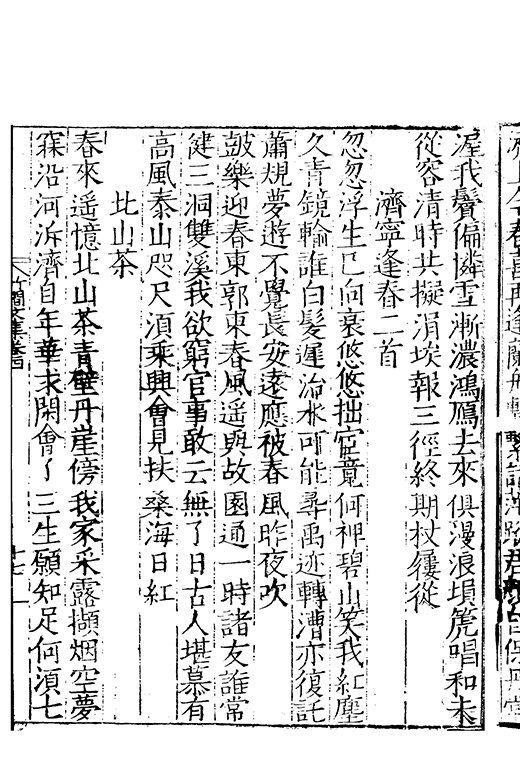 渥我鬢偏憐雪漸濃鴻鴈去來俱漫浪塤篪唱和未
從容清時共擬涓埃報三徑終期杖屨從
濟寧逢春二首
忽忽浮生已向衰悠悠拙宦竟何裨碧山笑我紅塵
久青鏡輸誰白髮遲治水可能尋禹迹轉漕亦復託
蕭規夢遊不覺長安遠應被春風昨夜吹
鼓樂迎春東郭東春風遙與故園通一時諸友誰常
健三洞雙溪我欲窮官事敢云無了日古人堪慕有
高風泰山咫尺須乘興會見扶桑海日紅
北山茶
春來遙憶北山茶青壁丹崖傍我家采露擷烟空夢
寐沿河泝濟自年華未閑會了三生願知足何須七
文集卷四
十七